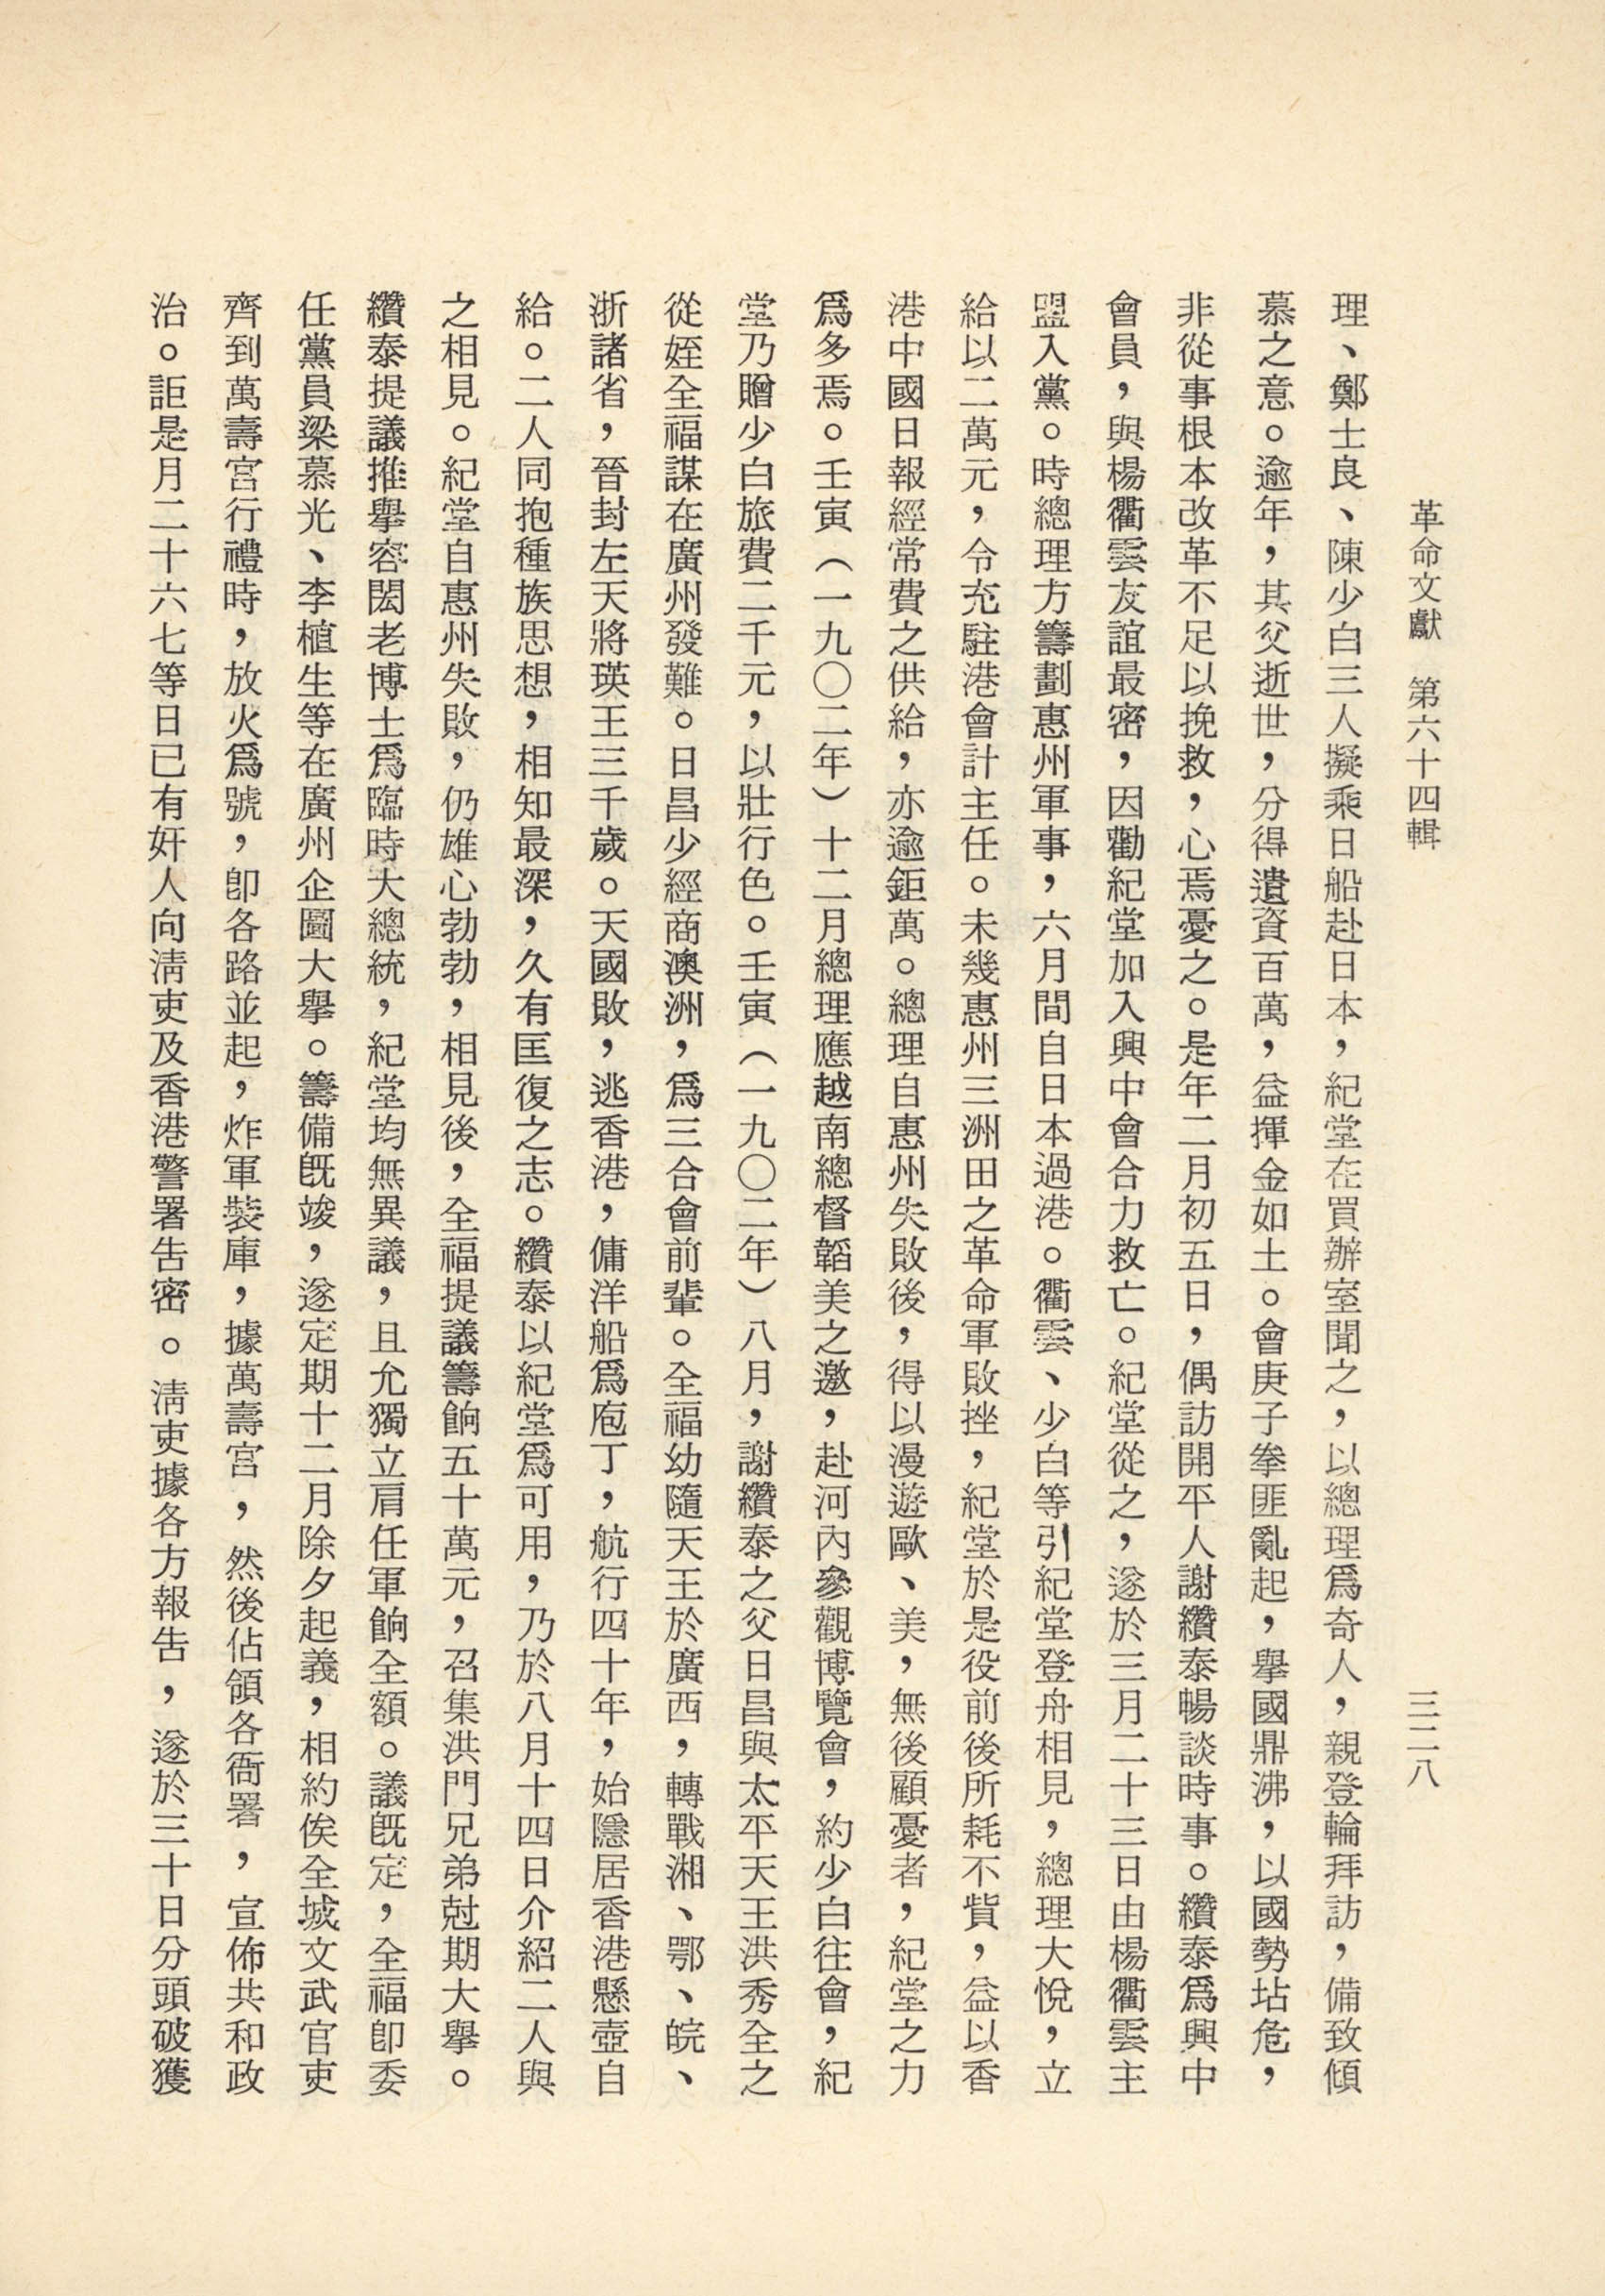 革命文獻　第六十四輯
三二八
理、鄭士良、陳少白三人擬乘日船赴日本，紀堂在買辦室聞之，以總理爲奇人，親登輪拜訪，備致傾
慕之意。逾年，其父逝世，分得遺資百萬，益揮金如土。會庚子拳匪亂起，舉國鼎沸，以國勢坫危，
非從事根本改革不足以挽救，心焉憂之。是年二月初五日，偶訪開平人謝纘泰暢談時事。纘泰爲興中
會員，與楊衢雲友誼最密，因勸紀堂加入興中會合力救亡。紀堂從之，遂於三月二十三日由楊衢雲主
盟入黨。時總理方籌劃惠州軍事，六月間自日本過港。衢雲、少白等引紀堂登舟相見，總理大悅，立
給以二萬元，令充駐港會計主任。未幾惠州三洲田之革命軍敗挫，紀堂於是役前後所耗不貲，益以香
港中國日報經常費之供給，亦逾鉅萬。總理自惠州失敗後，得以漫遊歐、美，無後顧憂者，紀堂之力
爲多焉。壬寅（一九〇二年）十二月總理應越南總督韜美之邀，赴河內參觀博覽會，約少白往會，紀
堂乃贈少白旅費二千元，以壯行色。壬寅（一九〇二年）八月，謝纘泰之父日昌與太平天王洪秀全之
從姪全福謀在廣州發難。日昌少經商澳洲，爲三合會前輩。全福幼隨天王於廣西，轉戰湘、鄂、皖、
浙諸省，晉封左天將瑛王三千歲。天國敗，逃香港，傭洋船爲庖丁，航行四十年，始隱居香港懸壺自
給。二人同抱種族思想，相知最深，久有匡復之志。纘泰以紀堂爲可用，乃於八月十四日介紹二人與
之相見。紀堂自惠州失敗，仍雄心勃勃，相見後，全福提議籌餉五十萬元，召集洪門兄弟尅期大舉。
纘泰提議推舉容閎老博士爲臨時大總統，紀堂均無異議，且允獨立肩任軍餉全額。議旣定，全福卽委
任黨員梁慕光、李植生等在廣州企圖大舉。籌備旣竣，遂定期十二月除夕起義，相約俟全城文武官吏
齊到萬壽宮行禮時，放火爲號，卽各路並起，炸軍裝庫，據萬壽宮，然後佔領各衙署，宣佈共和政
治。詎是月二十六七等日已有奸人向淸吏及香港警署吿密。淸吏據各方報吿，遂於三十日分頭破獲